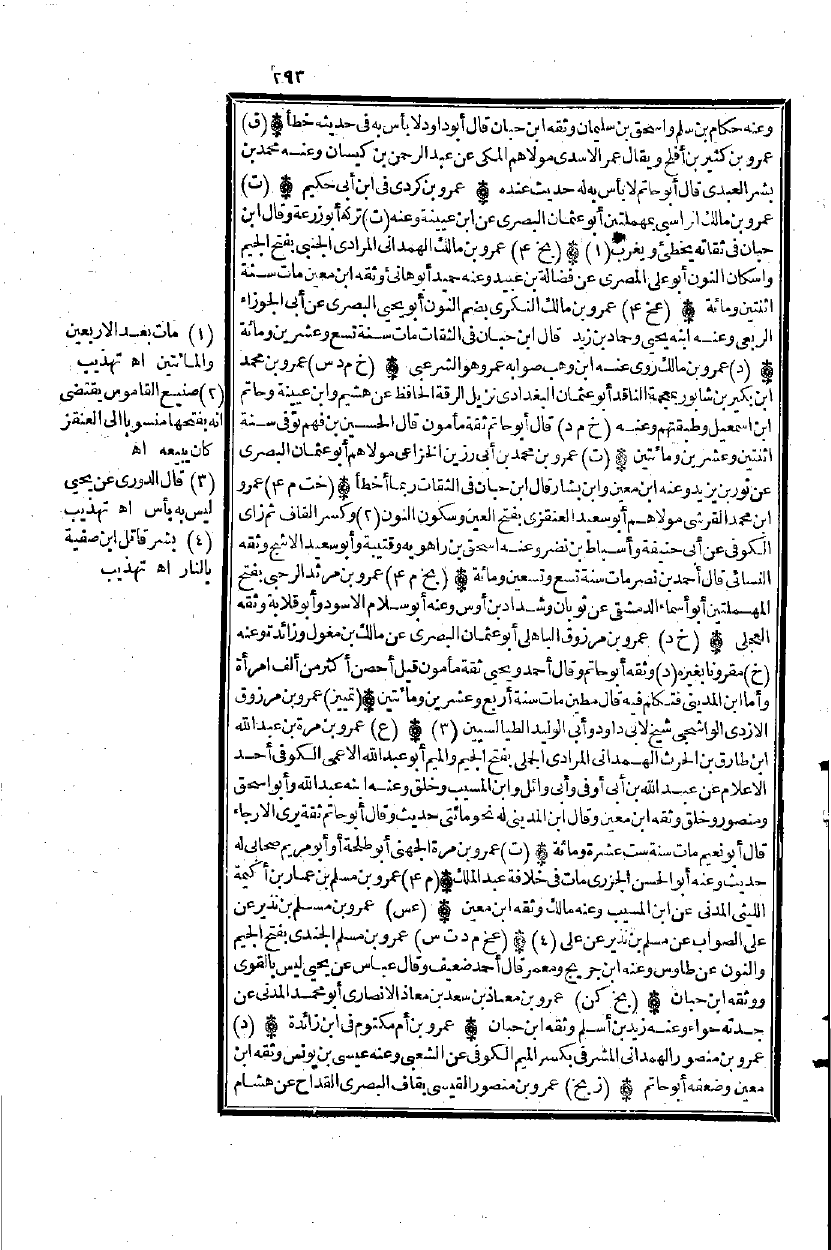 ٢٩٣
وعنه حكام بن سلم واسحق بن سليمان وثقه ابن حبان قال أبو داود لا بأس به فى حديثه خطأ ۞ (ق)
عمرو بن كثير بن أفلح ويقال عمر الاسدى مولاهم المكى عن عبد الرحمن بن كيسان وعنه محمد بن
بشر العبدى قال أبو حاتم لا بأس به له حديث عنده ۞ عمرو بن كردى فى ابن أبى حكيم ۞ (ت)
عمرو بن مالك الراسبى بمهملتين أبو عثمان البصرى عن ابن عيينة وعنه (ت) تركه أبو زرعة وقال ابن
حبان فى ثقاته يخطئ ويغرب (١) ۞ (بخ ٤) عمرو بن مالك الهمدانى المرادى الجنبى بفتح الجيم
واسكان النون أبو على المصرى عن فضالة بن عبيد وعنه حميد أبو هانئ وثقه ابن معين مات سنة
اثنتين ومائة ۞ (عخ ٤) عمرو بن مالك النكرى بضم النون أبو يحيى البصرى عن أبى الجوزاء
الربعى وعنه ابنه يحيى وحماد بن زيد قال ابن حبان فى الثقات مات سنة تسع وعشرين ومائة
۞ (د) عمرو بن مالك روى عنه ابن وهب صوابه عمر وهو الشرعبى ۞ (خ م د س) عمرو بن محمد
ابن بكير بن شابور بمعجمة الناقد أبو عثمان البغدادى نزيل الرقة الحافظ عن هشيم وابن عيينة وحاتم
ابن اسمعيل وطبقتهم وعنه (خ م د) قال أبو حاتم ثقة مأمون قال الحسين بن فهم توفى سنة
اثنتين وعشرين ومائتين ۞ (ت) عمرو بن محمد بن أبى رزين الخزاعى مولاهم أبو عثمان البصرى
عن ثور بن يزيد وعنه ابن معين وابن بشار قال ابن حبان فى الثقات ربما أخطأ ۞ (خت م ٤) عمرو
ابن محمد القرشى مولاهم أبو سعيد العنقزى بفتح العين وسكون النون (٢) وكسر القاف ثم زاى
الكوفى عن أبى حنيفة وأسباط بن نصر وعنه اسحق بن راهويه وقتيبة وأبو سعيد الاشج وثقه
النسائى قال أحمد بن نصر مات سنة تسع وتسعين ومائة ۞ (بخ م ٤) عمرو بن مرثد الرحبى بفتح
المهملتين أبو أسماء الدمشقى عن ثوبان وشداد بن أوس وعنه أبو سلام الاسود وأبو قلابة وثقه
العجلى ۞ (خ د) عمرو بن مرزوق الباهلى أبو عثمان البصرى عن مالك بن مغول وزائدة وعنه
(خ) مقرونا بغيره (د) وثقه أبو حاتم وقال أحمد ويحيى ثقة مأمون قيل أحصن أكثر من ألف امرأة
وأما ابن المدينى فتكلم فيه قال مطين مات سنة أربع وعشرين ومائتين ۞ (تمييز) عمرو بن مرزوق
الازدى الواشحى شيخ لابى داود وأبى الوليد الطيالسيين (٣) ۞ (ع) عمرو بن مرة بن عبد الله
ابن طارق بن الحرث الهمدانى المرادى الجملى بفتح الجيم والميم أبو عبد الله الاعمى الكوفى أحد
الاعلام عن عبد الله بن أبى أوفى وأبى وائل وابن المسيب وخلق وعنه ابنه عبد الله وأبو اسحق
ومنصور وخلق وثقه ابن معين وقال ابن المدينى له نحو مائتى حديث وقال أبو حاتم ثقة يرى الارجاء
قال أبو نعيم مات سنة ست عشرة ومائة ۞ (ت) عمرو بن مرة الجهنى أبو طلحة أو أبو مريم صحابى له
حديث وعنه أبو الحسن الجزرى مات فى خلافة عبد الملك ۞ (م ٤) عمرو بن مسلم بن عمار بن أكيمة
الليثى المدنى عن ابن المسيب وعنه مالك وثقه ابن معين ۞ (عس) عمرو بن مسلم بن نذير عن
على الصواب عن مسلم بن نذير عن على (٤) ۞ (عخ م د ت س) عمرو بن مسلم الجندى بفتح الجيم
والنون عن طاوس وعنه ابن جريج ومعمر قال أحمد ضعيف وقال عباس عن يحيى ليس بالقوى
ووثقه ابن حبان ۞ (بخ كن) عمرو بن معاذ بن سعد بن معاذ الانصارى أبو محمد المدنى عن
جدته حواء وعنه زيد بن أسلم وثقه ابن حبان ۞ عمرو بن أم مكتوم فى ابن زائدة ۞ (د)
عمرو بن منصور الهمدانى المشرقى بكسر الميم الكوفى عن الشعبى وعنه عيسى بن يونس وثقه ابن
معين وضعفه أبو حاتم ۞ (ز بخ) عمرو بن منصور القيسى بقاف البصرى القداح عن هشام
(١) مات بعد الاربعين
والمائتين اه تهذيب
(٢) صنيع القاموس يقتضى
انه بفتحها منسوبا الى العنقز
كان يبيعه اه
(٣) قال الدورى عن يحيى
ليس به بأس اه تهذيب
(٤) بشر قاتل ابن صفية
بالنار اه تهذيب